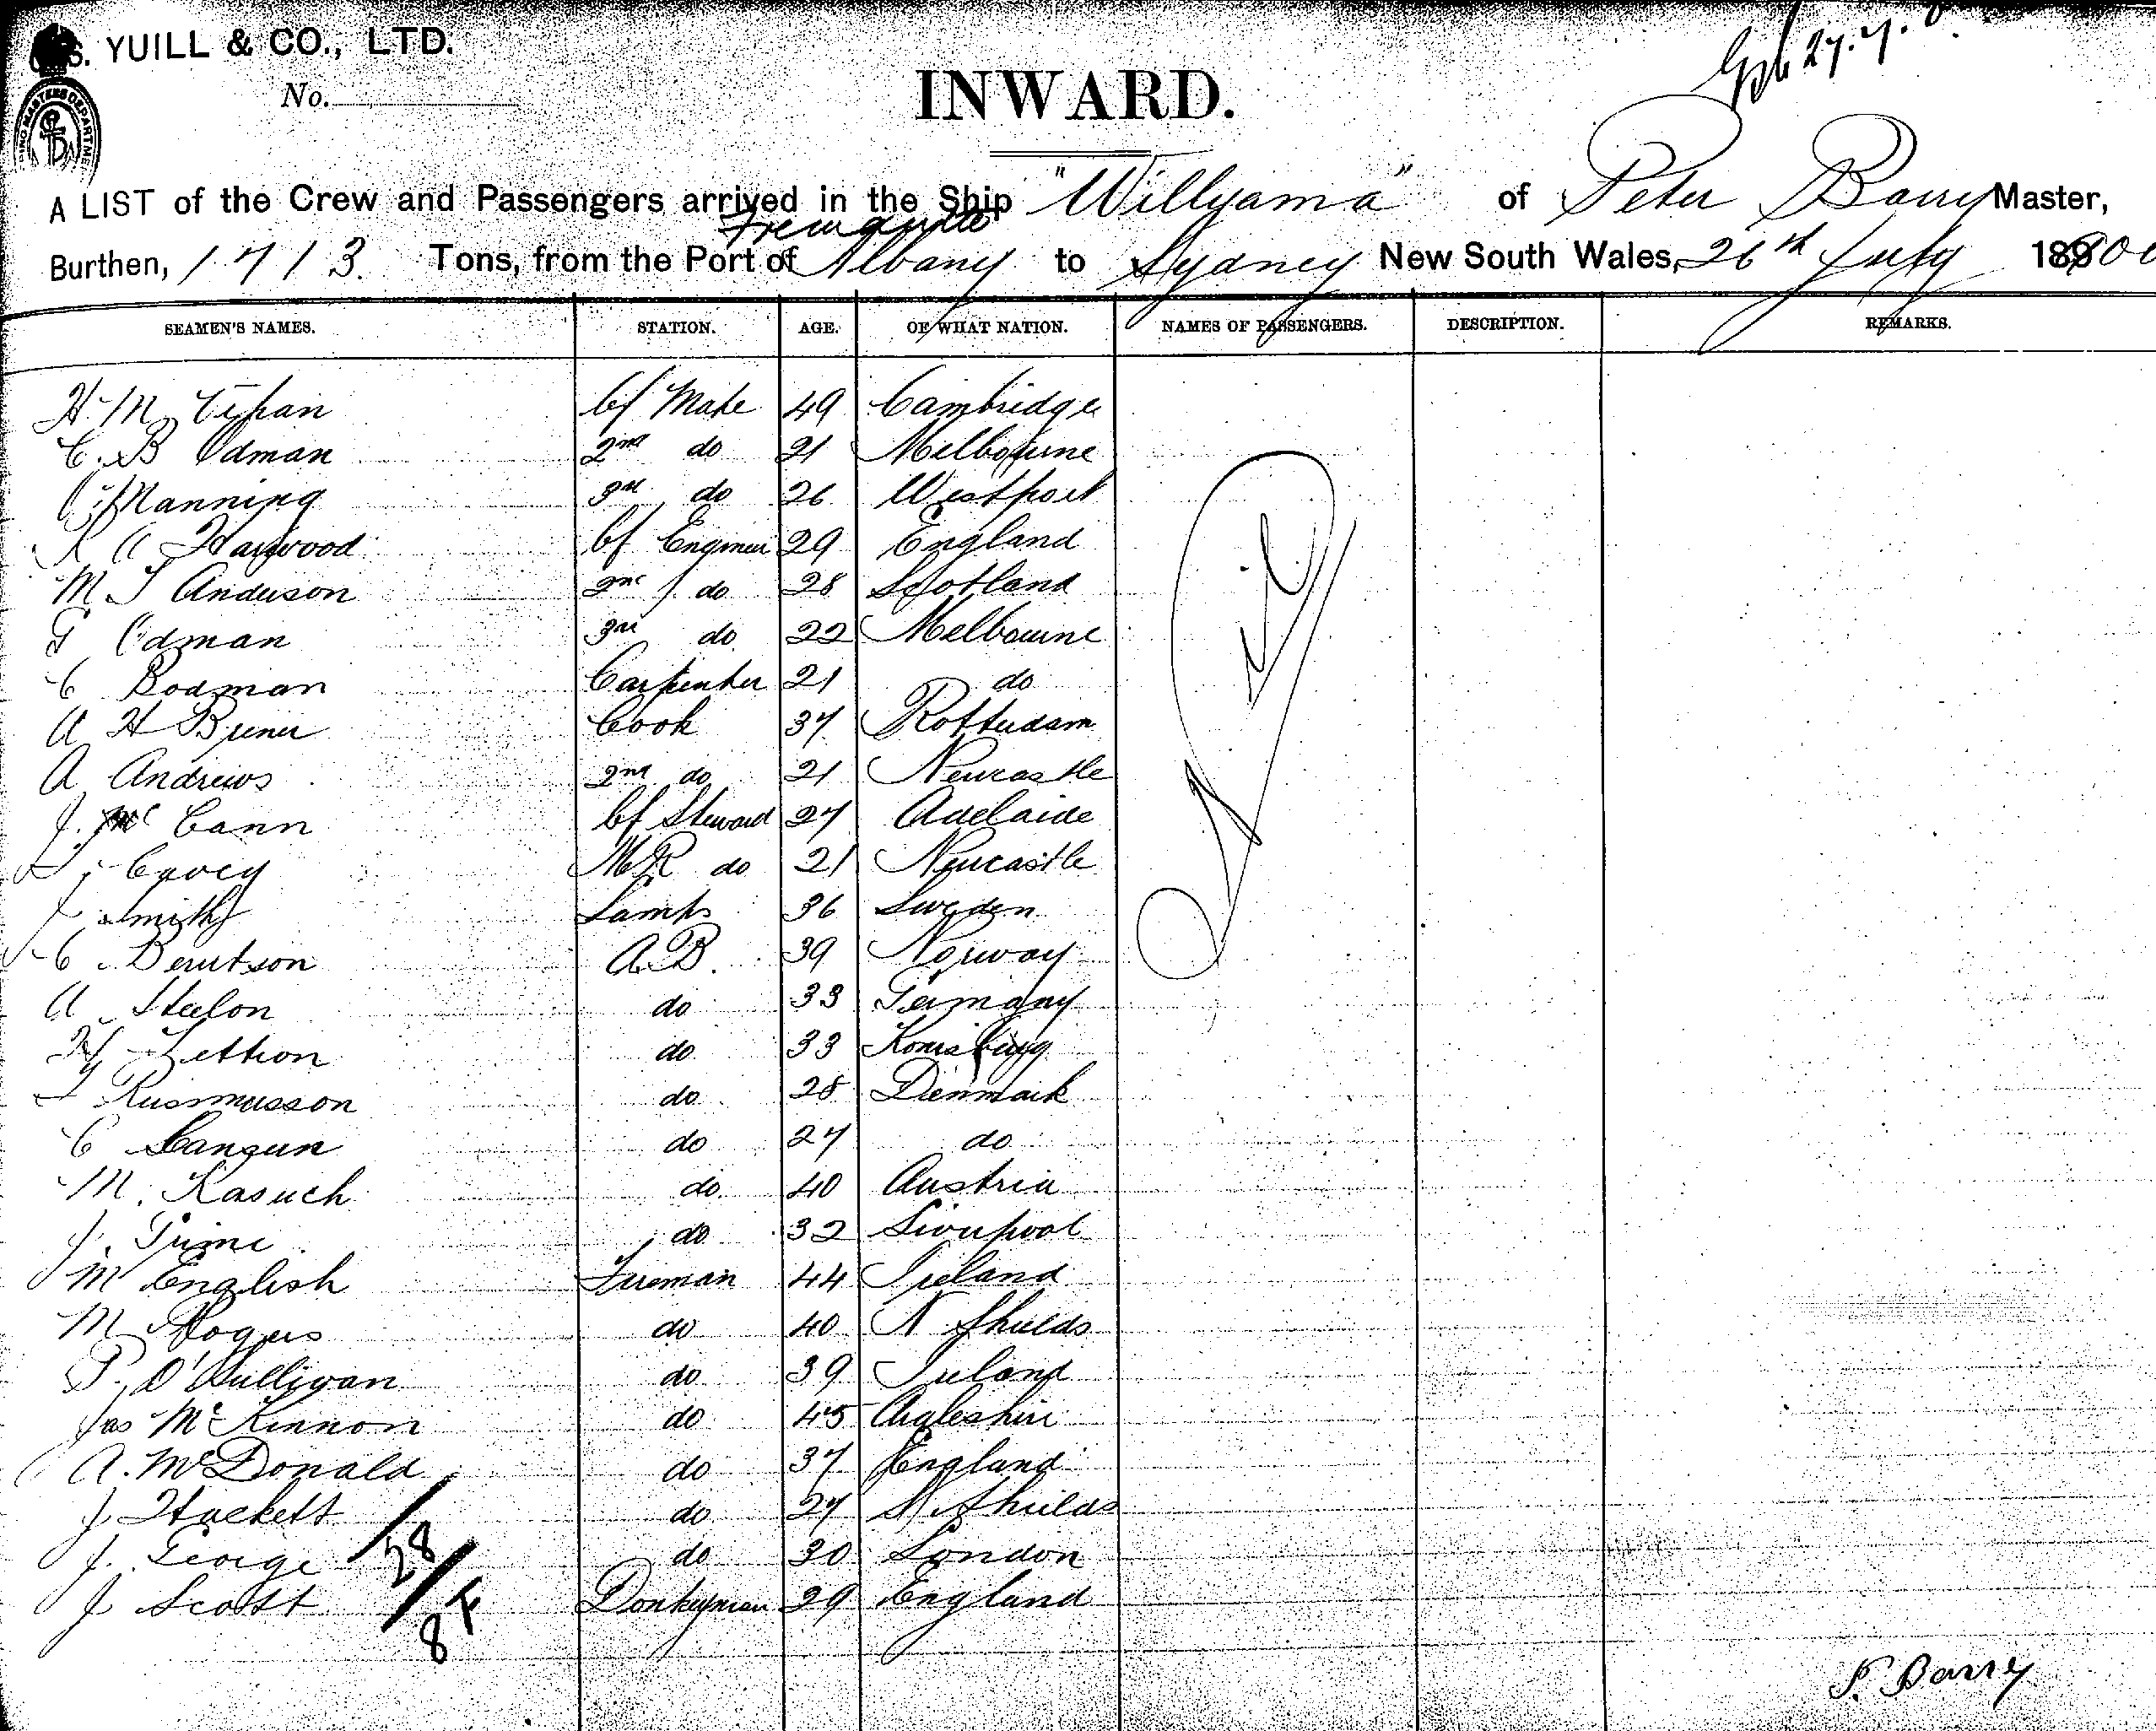 S. YUILL & CO., LTD.
No.
INWARD.
A LIST of the Crew and Passengers arrived in the Ship "Willyama" of Peter Barry Master,
Fremantle
Burthen, 1713. Tons, from the Port of Albany to Sydney New South Wales, 26th July 1900
SEAMEN'S NAMES. STATION. AGE. OF WHAT NATION. NAMES OF PASSENGERS. DESCRIPTION. REMARKS.
H. M. Cf Mate 49 Cambridge
C. B Odman 2nd do 21 Melbourne
Manning 3rd do 26 Westport
Harwood Cf Engineer 29 England
M J Anderson 2nd do 28 Scotland
G Odman 3rd do 22 Melbourne
C Bodman Carpenter 21 do
A H Bruner Cook 37 Rotterdam
A Andrews 2nd do 21 Newcastle
J. Mc Cann Cf Steward 27 Adelaide
Cavey M R do 21 Newcastle
J Smith Lamps 36 Sweden
C Berntson A.B. 39 Norway
A Steelon do 33 Germany
H do 33 Konisburg
Rusmusson do 28 Denmark
C Langun do 27 do
M. Kasuch do 40 Austria
J. do 32 Liverpool
M English Fireman 44 Ireland
M Rogers do 40 N Shields
P. O'Sullivan do 39 Ireland
Jas McKinnon do 45 Argleshire
A. McDonald do 37 England
J Hackett do 27 N. Shields
J. George do 30 London
J Scott Donkeyman 29 England
Nil
28
8 F
P. Barry